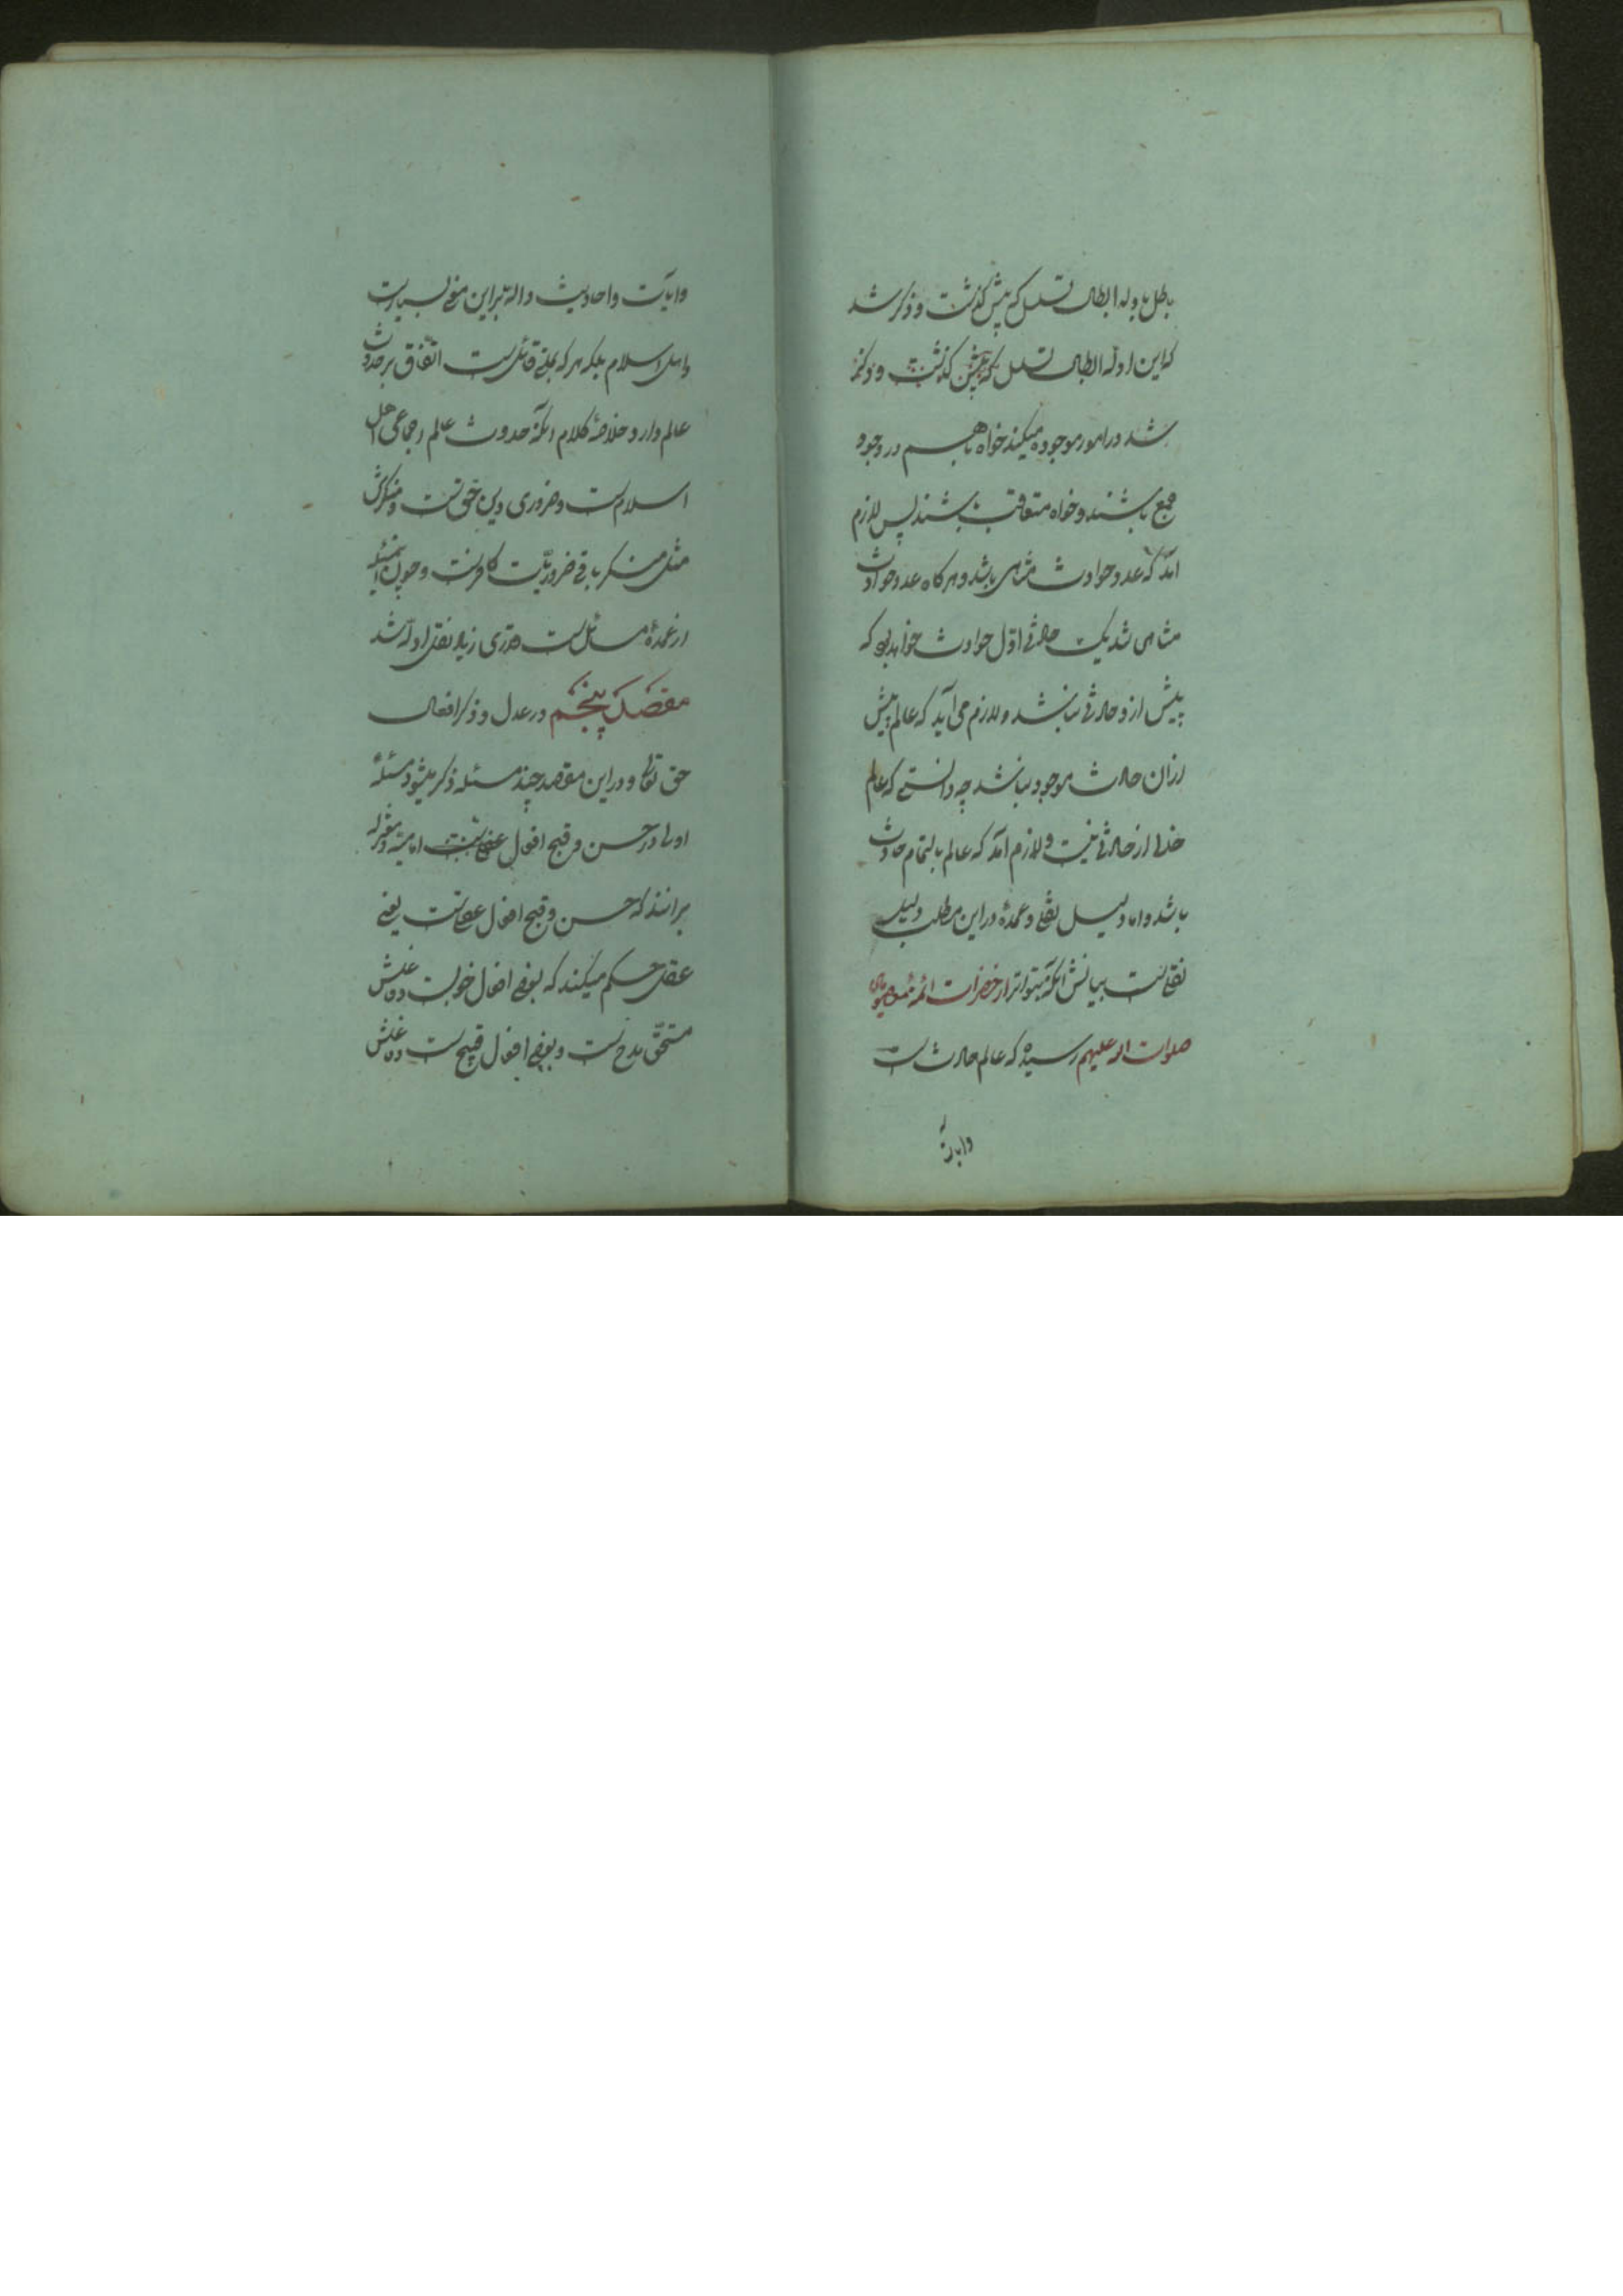 باطل باوله ابطال تسلسل که پیش گذشت و ذکر شد
که این ادله ابطال تسلسل که پیش گذشت و ذکر
شد در امور موجوده میکند خواه باهم در وجود
جمع باشند و خواه متعاقب باشند پس لازم
آمد که عدد حوادث متناهی باشد و هرگاه عدد حوادث
متناهی شد یک حادثی اوّل حوادث خواهد بود که
پیش ازو حادثی نباشد و لازم می آید که عالم پیش
ازان حادث موجود نباشد چه دانستی که عالم
خالی از حادثی نیست و لازم آمد که عالم بالتمام حادث
باشد و اما دلیل نقلی و عمدهٔ در این مطلب دلیل
نقلی است بیانش آنکه متواتر از حضرات ائمه معصومین
صلوات الله علیهم رسیده که عالم حادث است
وایات
وایات و احادیث داله براین معنی بسیار است
واهل اسلام بلکه هر که بملتی قائل است اتّفاق بر حدوث
عالم دارد و خلاصهٔ کلام آنکه حدوث عالم اجماعی اهل
اسلام است و ضروری دین حق است و منکرش
مثل منکر باقی ضروریّات کافر است و چون این مسئله
از عمدهٔ مسائل است قدری زیاد نقل ادلّه شد
مقصد پنجم در عدل و ذکر افعال
حق تعالی و دراین مقصد چند مسئله ذکر میشود مسئلهٔ
اولی در حسن و قبح افعال عقلیست امامیّه و معتزله
برانند که حسن و قبح افعال عقلیست یعنی
عقل حکم میکند که بعضی افعال خوبست و فاعلش
مستحقّ مدح است و بعضی افعال قبیح است و فاعلش